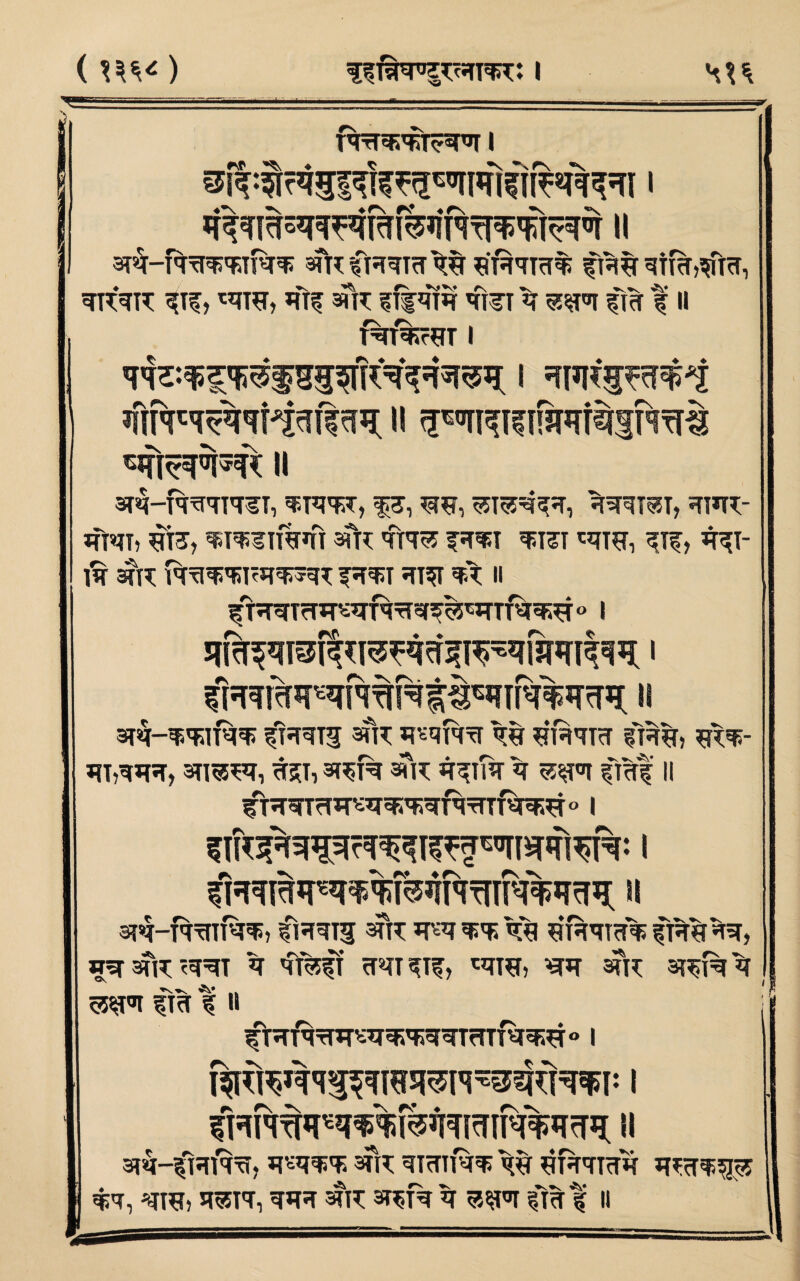 ( १३९८ ) बृहन्निघण्टुरत्नाकरः । ५१६
पित्तकफोल्बण ।
छर्दिःशैत्यंमुहुर्दाहस्तृष्णामोहोस्थिवेदना ।
मंदवातेव्यवस्यंतिलिंगंपित्तकफोल्बणे ॥
अर्थ-पित्तकफाधिक और हीनवात ऐसे संनिपातके होनेसे वांति,शीत,
वारंवार दाह, प्यास, मोह और हड्डियोंमें पीडा ये लक्षण होते हैं ॥
चिकित्सा ।
पर्पटःकट्फलंकुष्ठमुशीरंचंदनंजलम् । नागरंमुस्तकंशृं
गीपिप्पल्येषांशृतंहितम् ॥ तृष्णादाहाग्निमांद्येषुपित्तश्ले
ष्मोल्बणेज्वरे ॥
अर्थ-पित्तपापडा, कायफर, कूठ, खस, लालचंदन, नेत्रवाला, नागर-
मोथा, सोंठ, काकडाशिंगी और पीपल इनका काढा प्यास, दाह, मंदा-
ग्नि और पित्तकफोल्बणज्वर इनका नाश करे ॥
हीनवातमध्यपित्तवृद्धश्लेष्माधिकसं० ।
प्रतिश्यायश्छर्दिरालस्यंतंद्रारुच्यग्निमार्दवम् ।
हीनवातेमध्यपित्तेचिह्नंश्लेष्माधिकेमतम् ॥
अर्थ-कफाधिक हीनवायु और मध्यपित्त ऐसे संनिपात होनेसे, सरेक-
मा,वमन, आलस्य, तंद्रा,अरुचि और मंदाग्नि ये लक्षण होतेहैं ॥
हीनवातमध्यकफपित्ताधिकसं० ।
हारिद्रमूत्रनेत्रत्वंदाहस्तृष्णाभ्रमोरुचिः ।
हीनवातेमध्यकफेलिंगंपित्ताधिकेमतम् ॥
अर्थ-पित्ताधिक, हीनवायु और मध्य कफ ऐसे संनिपातके होनेसे नेत्र,
मूत्र और त्वचा ये पीलीहों तथा दाह, प्यास, भ्रम और अरुचि ये
लक्षण होते हैं ॥
हीनपित्तमध्यकफवाताधिकसं० ।
शिरोरुग्वेपथुःश्वासप्रलापच्छर्द्यरोचकाः ।
हीनपित्तेमध्यकफेलिंगंवाताधिकेमतम् ॥
अर्थ-हीनपित्त, मध्यकफ और वाताधिक ऐसे संनिपातमें मस्तकशूल
कंप, श्वास, प्रलाप, वमन और अरुचि ये लक्षण होते हैं ॥